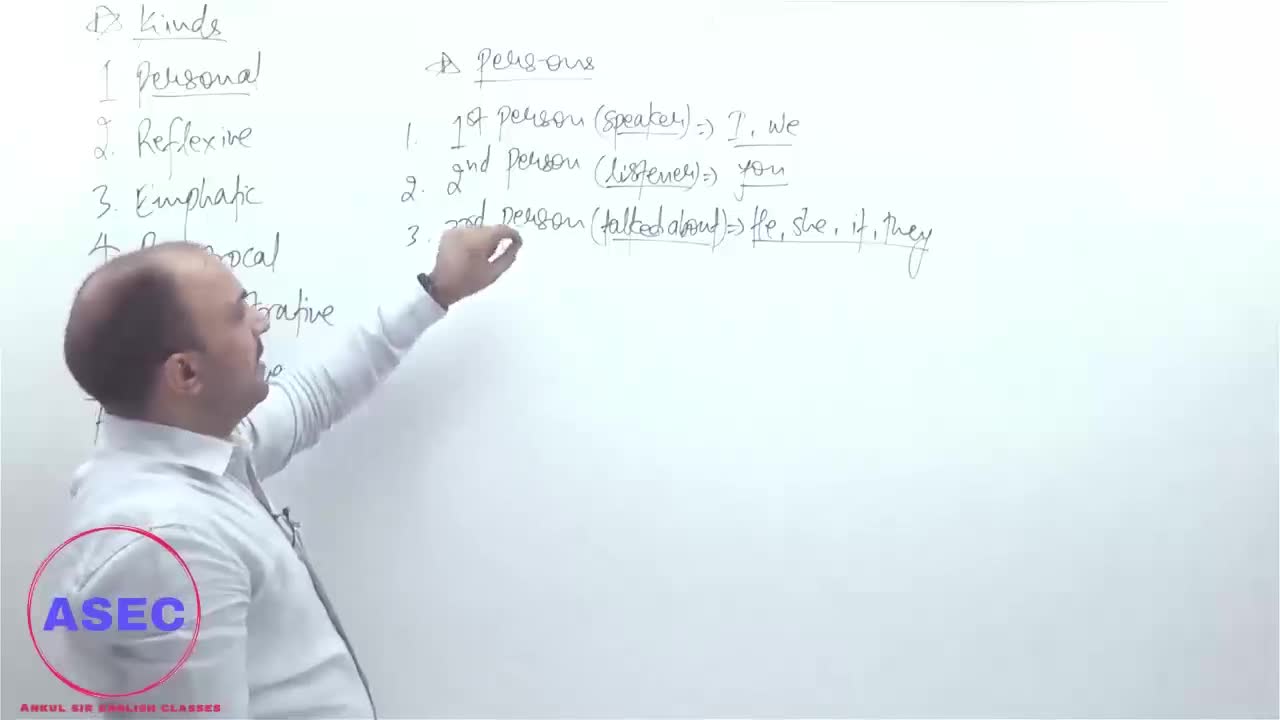 Kinds
1 Personal
2. Reflexive
3. Emphatic
4.
Persons
1. 1st person (speaker) => I, we
2. 2nd person (listener) => you
3. person (talked about) => He, she, it, they
ASEC
ANKUL SIR ENGLISH CLASSES